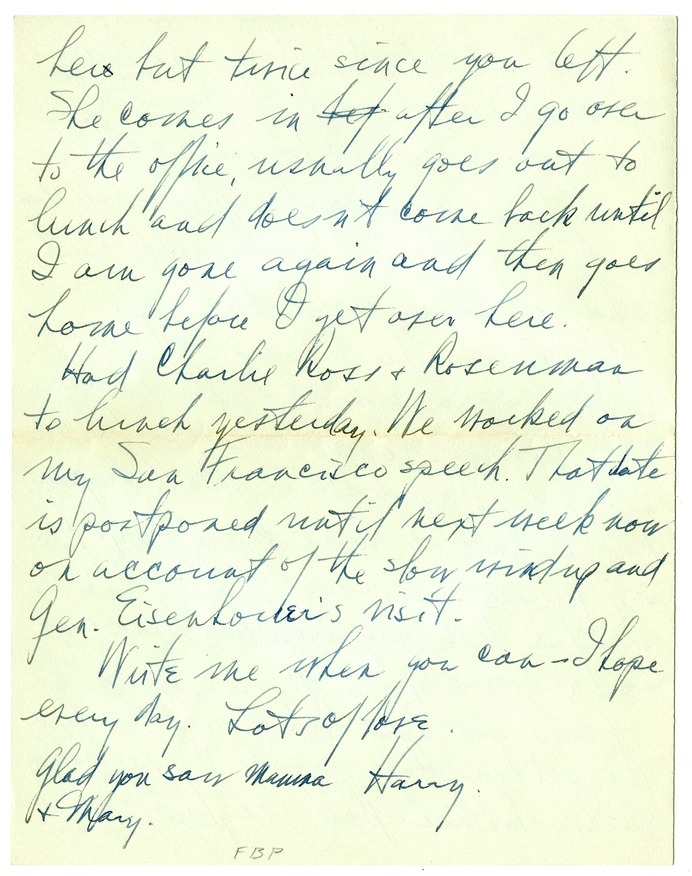 her but twice since you left.
She comes in bef after I go over
to the office, usually goes out to
lunch and doesn't come back until
I am gone again and then goes
home before I get over here.
Had Charlie Ross & Rosenman
to lunch yesterday. We worked on
my San Francisco speech. That date
is postponed until next week now
on account of the slow windup and
Gen. Eisenhower's visit.
Write me when you can – I hope
every day. Lots of love.
Glad you saw Mamma Harry.
& Mary.
FBP